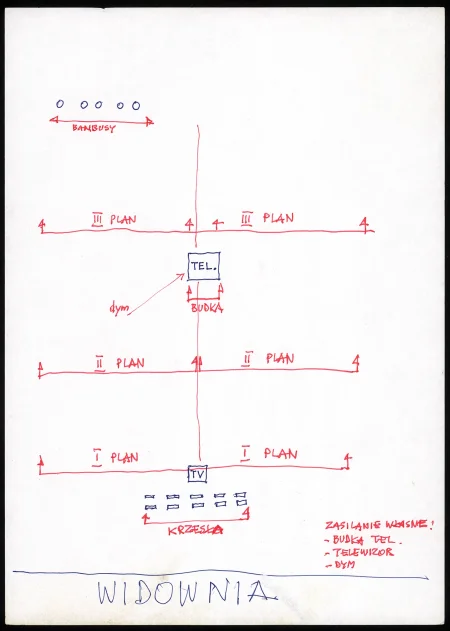 BAMBUSY
III PLAN III PLAN
TEL.
BUDKA
dym
II PLAN II PLAN
I PLAN I PLAN
TV
KRZESŁA
ZASILANIE WŁASNE!
- BUDKA TEL.
- TELEWIZOR
- DYM
WIDOWNIA